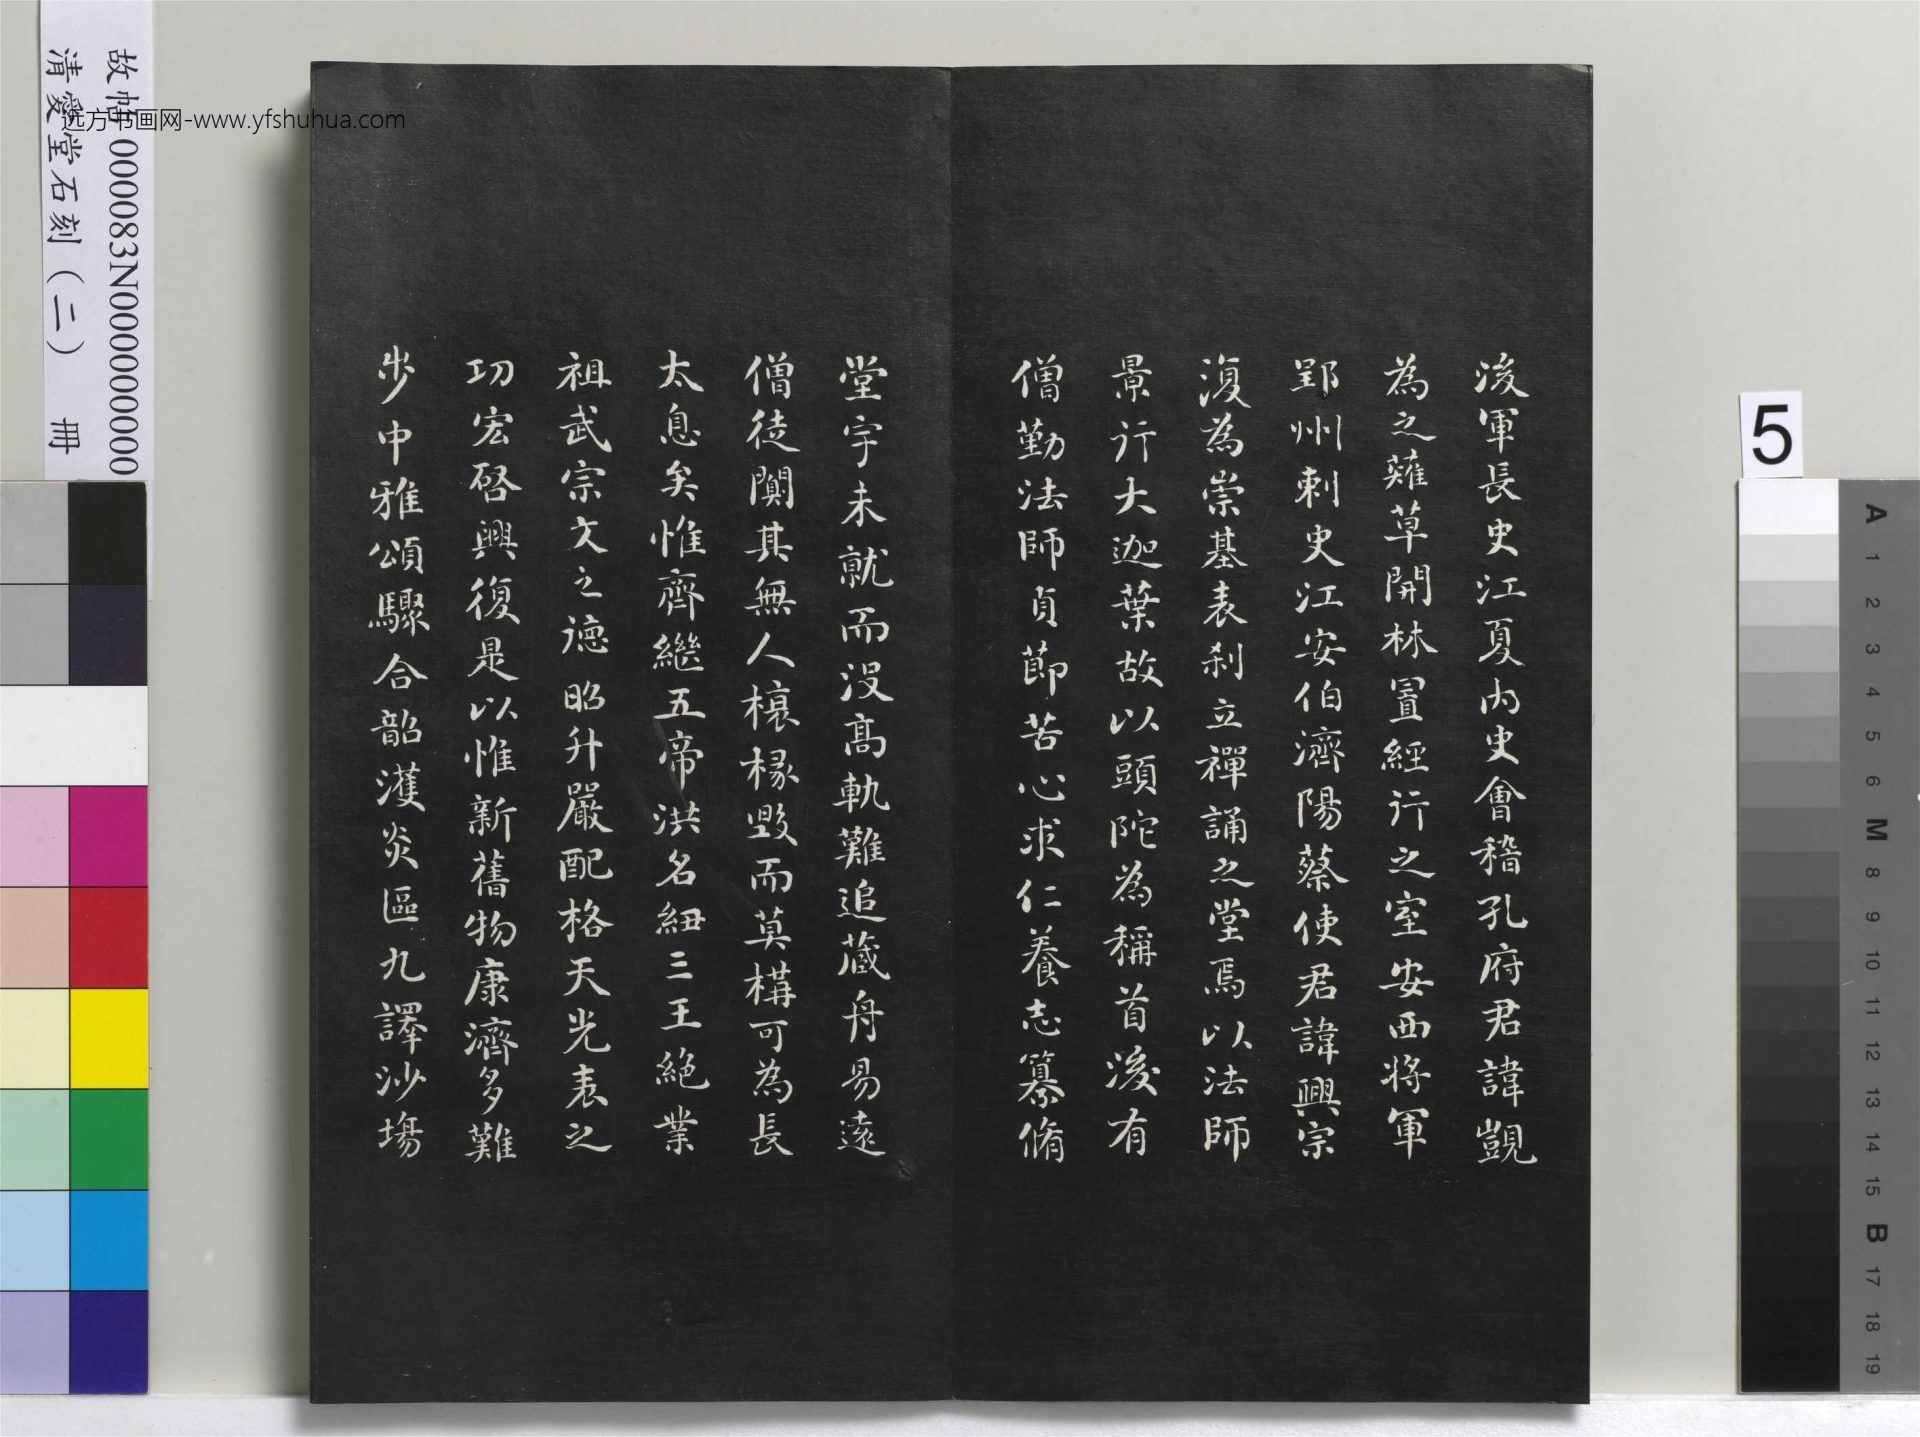 後軍長史江夏內史會稽孔府君諱覬
為之薙草開林置經行之室安西將軍
郢州刺史江安伯濟陽蔡使君諱興宗
復為崇基表刹立禪誦之堂焉以法師
景行大迦葉故以頭陀為稱首後有
僧勤法師貞節苦心求仁養志纂脩
堂宇未就而沒高軌難追藏舟易遠
僧徒闃其無人榱椽毀而莫構可為長
太息矣惟齊繼五帝洪名紐三王絕業
祖武宗文之德昭升嚴配格天光表之
功宏啓興復是以惟新舊物康濟多難
步中雅頌驟合韶濩炎區九譯沙場
故帖 000083N000000000
清愛堂石刻（二） 冊
远方书画网-www.yfshuhua.com
5
A
1
2
3
4
5
6
M
8
9
10
11
12
13
14
15
B
17
18
19